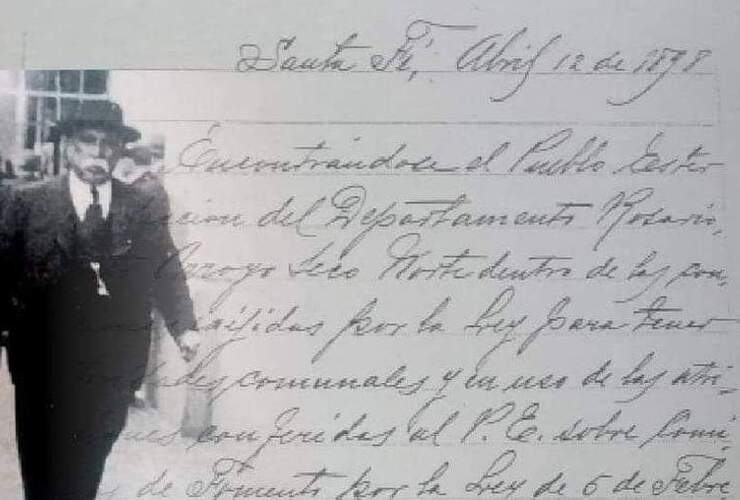 Santa Fé, Abril 12 de 1898
Encontrándose el Pueblo Ester
cion del Departamento Rosario,
Arroyo Seco Norte dentro de las con,
exijidas por la Ley para tener
comunales y en uso de las atri-
ciones conferidas al P. E. sobre Comi
de Fomento por la Ley de 5 de Febre